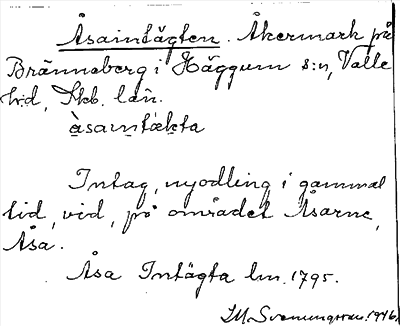 Åsaintägten. Åkermark på
Bränneberg i Häggum s:n, Valle
h:d, Skb. län.
àsaintä́kta
Intag, nyodling i gammal
tid, vid, på området Åsarne,
Åsa.
Åsa Intägta lm. 1795.
I M. Svenungsson. 1946.